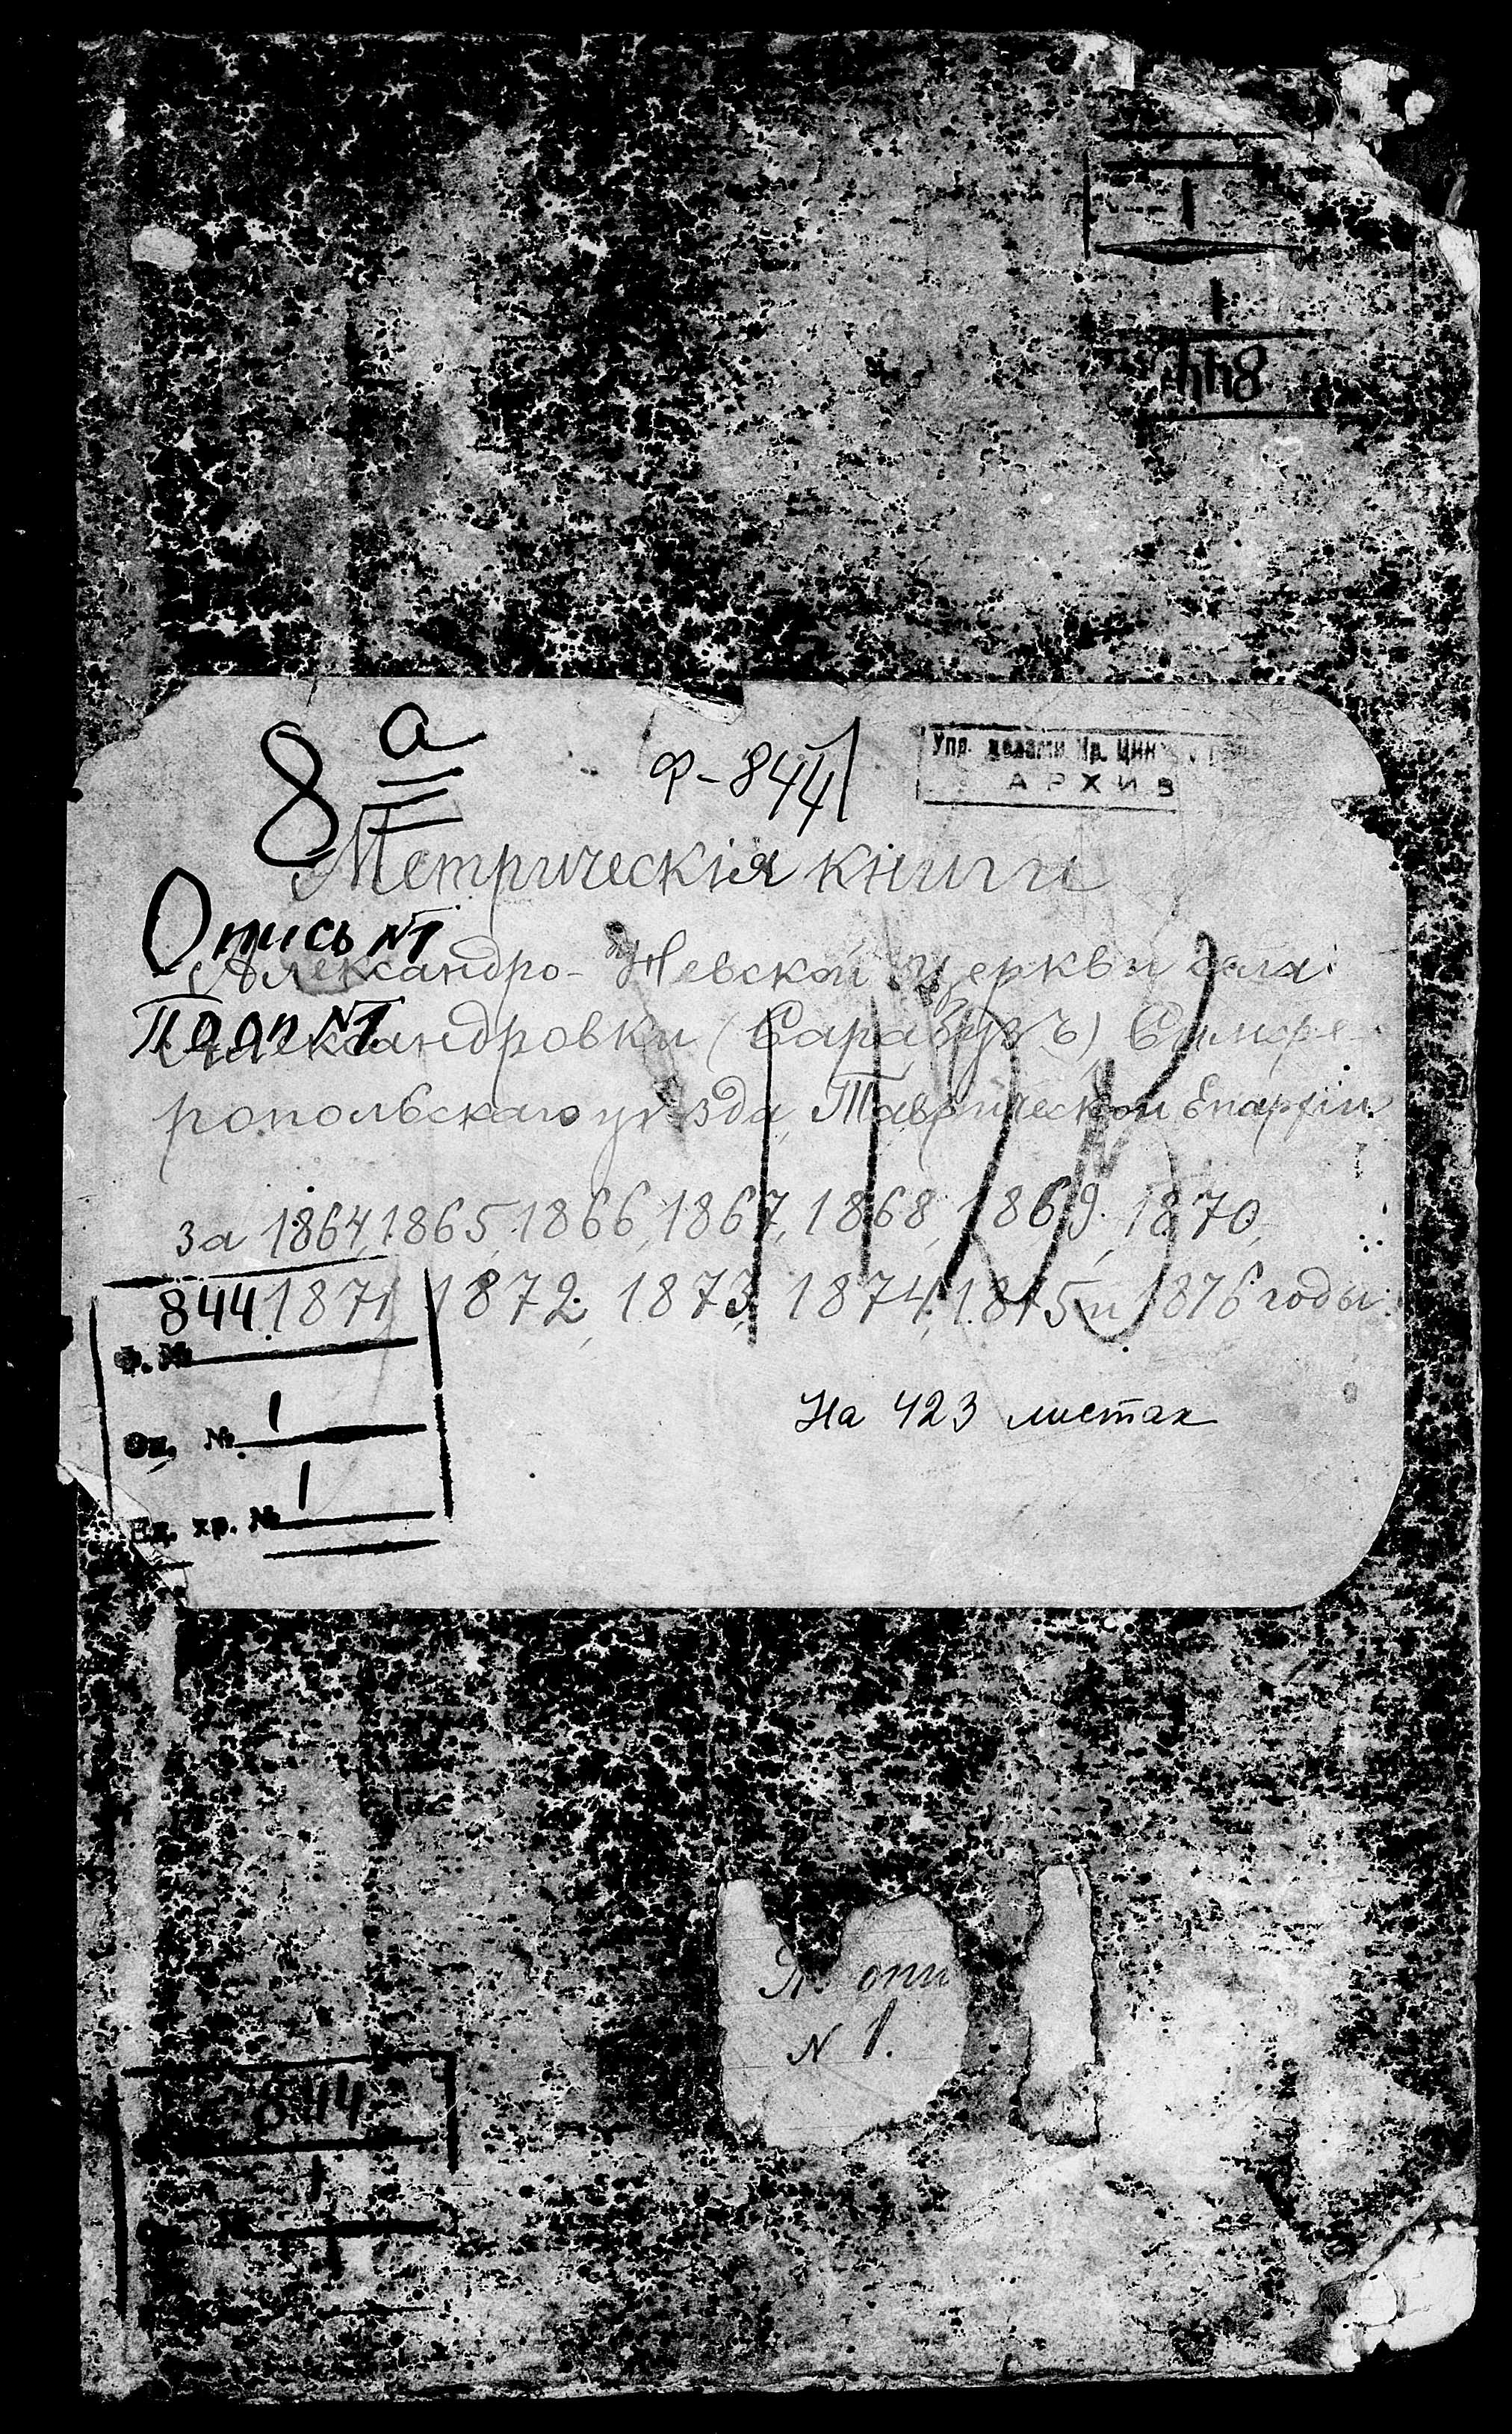 8 а
Ф-844
Упр. делами Кр. ЦИК
АРХИВ
Метрическія книги
Опись №1
Александро-Невской церкви села
По оп №1
Александровки (Сарабузъ) Симфе-
ропольскаго уѣзда, Таврической Епархіи
за 1864, 1865, 1866, 1867, 1868, 1869, 1870,
1871, 1872, 1873, 1874, 1875 и 1876 годы
844
Ф. №
1
Оп. №
1
Ед. хр. №
На 423 листах
1
1
844
опи
N 1.
844
1
1